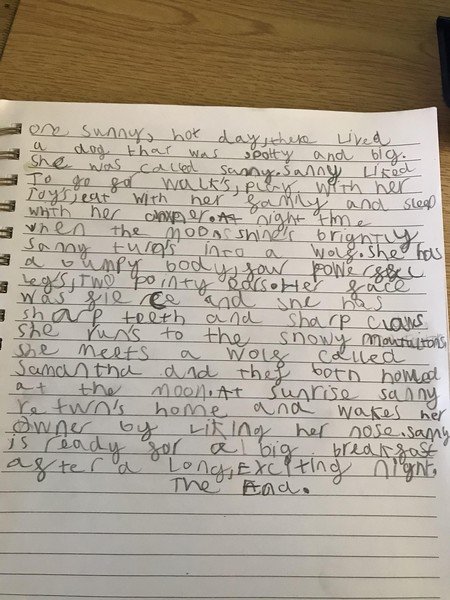 one sunny, hot day, there lived
a dog that was , potty and big.
She was called sanny. sanny liked
To go for walks, play with her
Toys, eat with her family and sleep
with her owner. At night time
when the moon shine's brightly
sanny turns into a wolf. she has
a bumpy body, four powerful
legs, two pointy ears. Her face
was fierce and she has
sharp teeth and sharp claws
she runs to the snowy mountains
she meets a wolf called
Samantha and they both howled
at the moon. At sunrise sanny
retwrn's home and wakes her
owner by liking her nose. sanny
is ready for a big breakfast
after a Long, Exciting night.
The End.